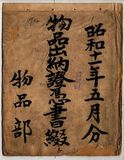 昭和十一年五月分
物品出納證憑書綴
物品部